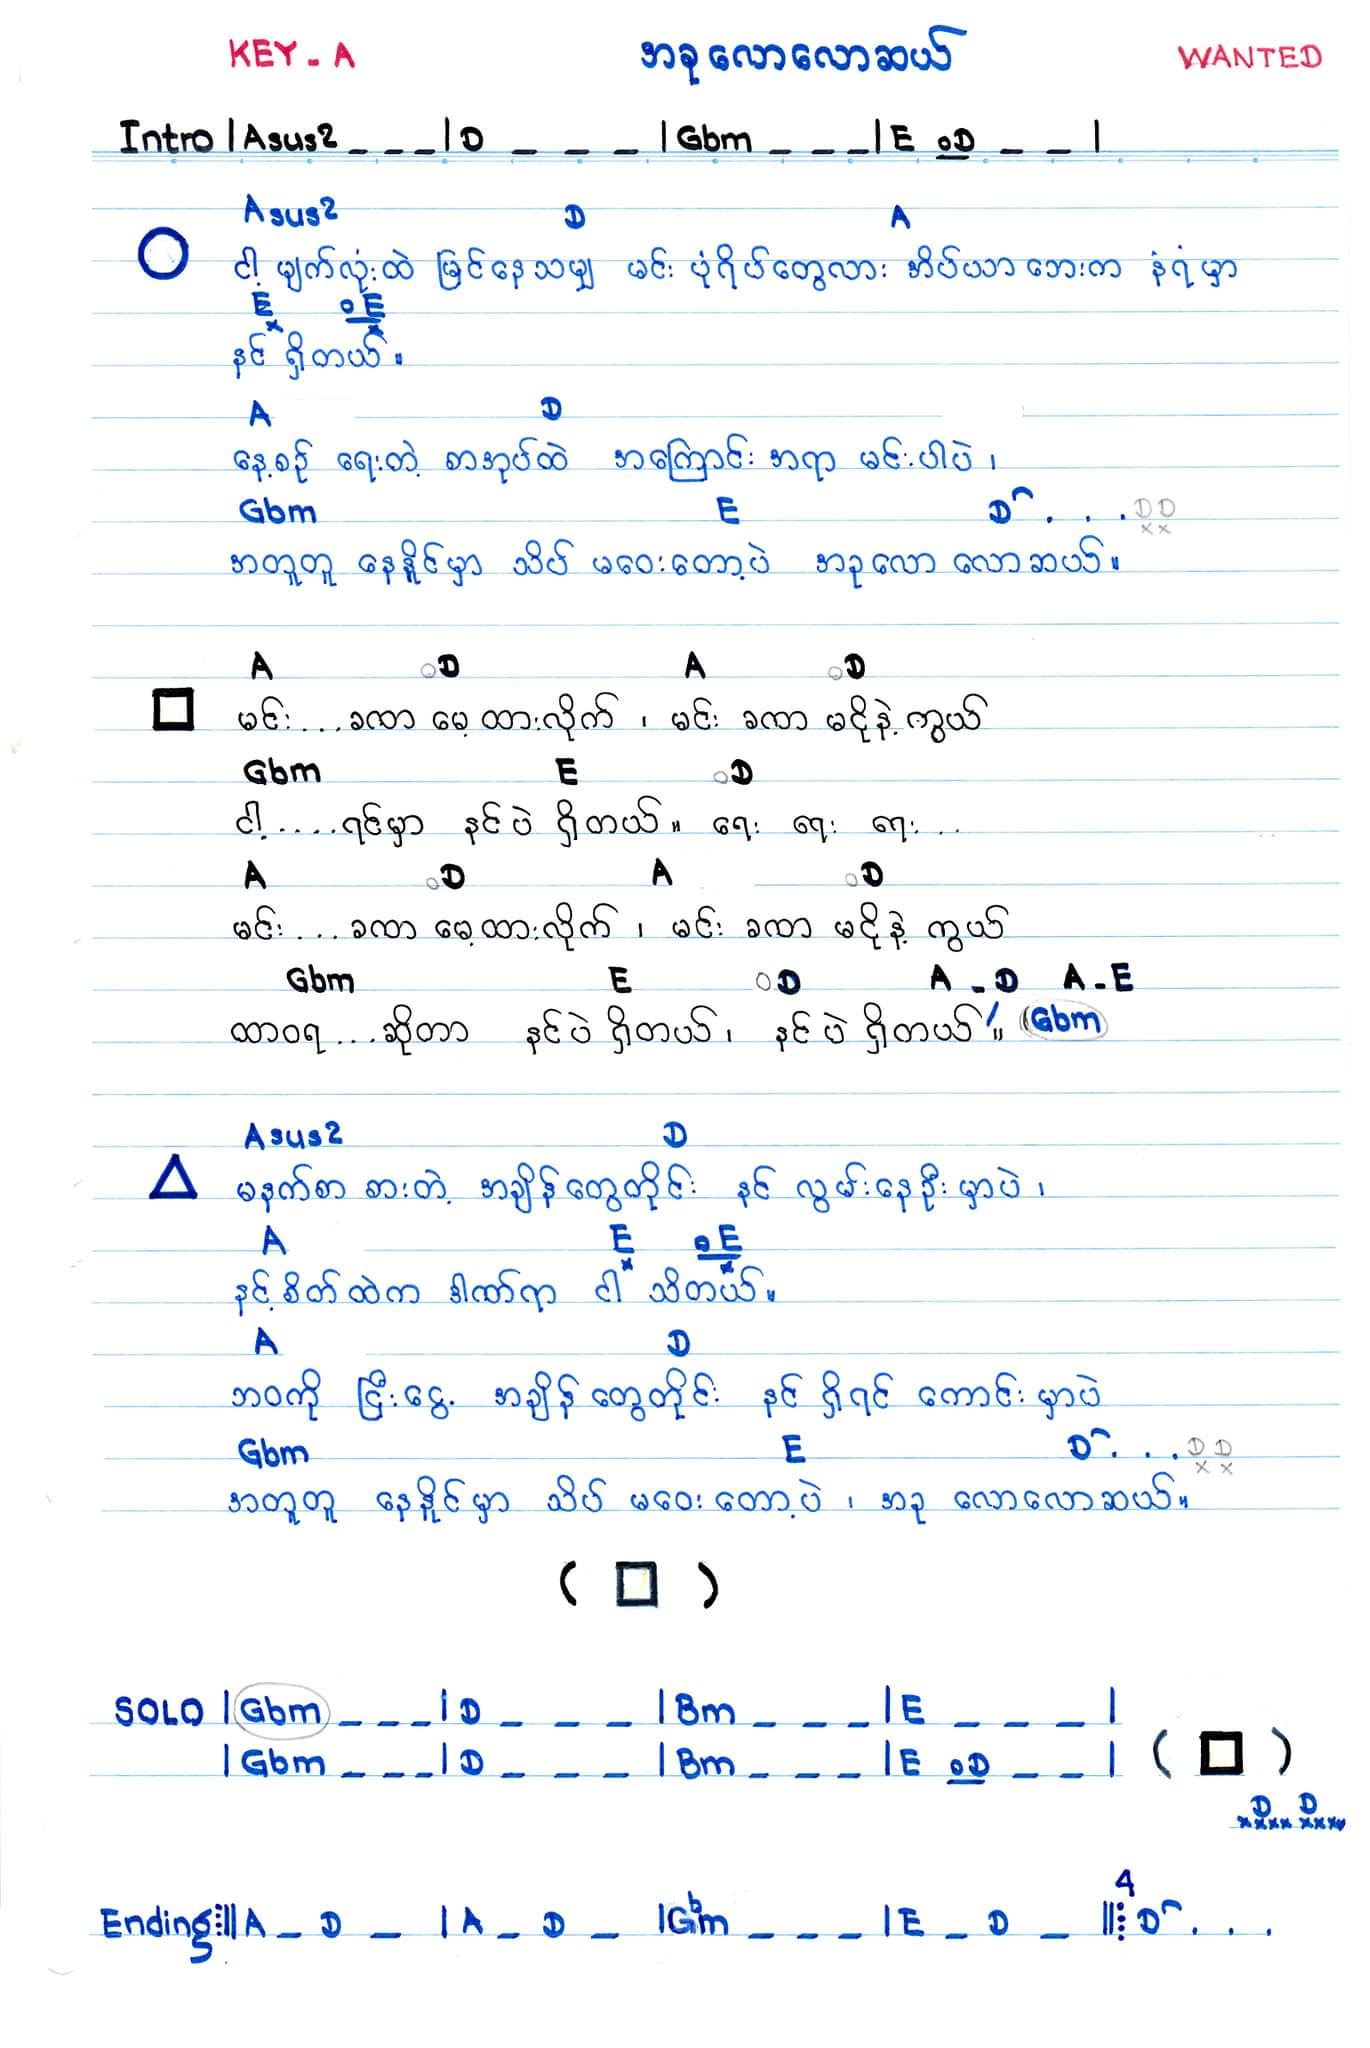 KEY - A အခုလောလောဆယ် WANTED
Intro | Asus2 _ _ _ | D _ _ _ | Gbm _ _ _ | E oD _ _ |
Asus2 D A
ငါ့ မျက်လုံးထဲ မြင်နေသမျှ မင်း ပုံရိပ်တွေလား အိပ်ယာဘေးက နံရံမှာ
E oE
x x
နင် ရှိတယ်။
A D
နေ့စဉ် ရေးတဲ့ စာအုပ်ထဲ အကြောင်းအရာ မင်းပါပဲ ၊
Gbm E D . . . D D
x x
အတူတူ နေနိူင်မှာ သိပ် မဝေးတော့ပဲ အခုလော လောဆယ်။
A oD A oD
မင်း . . . ခဏာ မေ့ထားလိုက် ၊ မင်း ခဏာ မငိုနဲ့ ကွယ်
Gbm E oD
ငါ့ . . . . . ရင်မှာ နင်ပဲ ရှိတယ်။ ရေး ရေး ရေး . . .
A oD A oD
မင်း . . . ခဏာ မေ့ထားလိုက် ၊ မင်း ခဏာ မငိုနဲ့ ကွယ်
Gbm E oD A - D A - E
ထာဝရ . . . ဆိုတာ နင်ပဲ ရှိတယ် ၊ နင်ပဲ ရှိတယ် ။ (Gbm)
Asus2 D
မနက်စာ စားတဲ့ အချိန်တွေတိုင်း နင် လွမ်းနေဦးမှာပဲ ၊
A E oE
x x
နင့်စိတ်ထဲက ဒါဏ်ရာ ငါ သိတယ်။
A D
ဘဝကို ငြီးငွေ့ အချိန်တွေတိုင်း နင် ရှိရင် ကောင်းမှာပဲ
Gbm E D . . . D D
x x
အတူတူ နေနိူင်မှာ သိပ် မဝေးတော့ပဲ ၊ အခု လောလောဆယ်။
( □ )
SOLO | Gbm _ _ _ | D _ _ _ | Bm _ _ _ | E _ _ _ |
| Gbm _ _ _ | D _ _ _ | Bm _ _ _ | E oD _ _ | ( □ )
D D
xxxx xxxx
4
Ending |: A _ D _ | A _ D _ | Gbm _ _ _ | E _ D _ :| D . . .